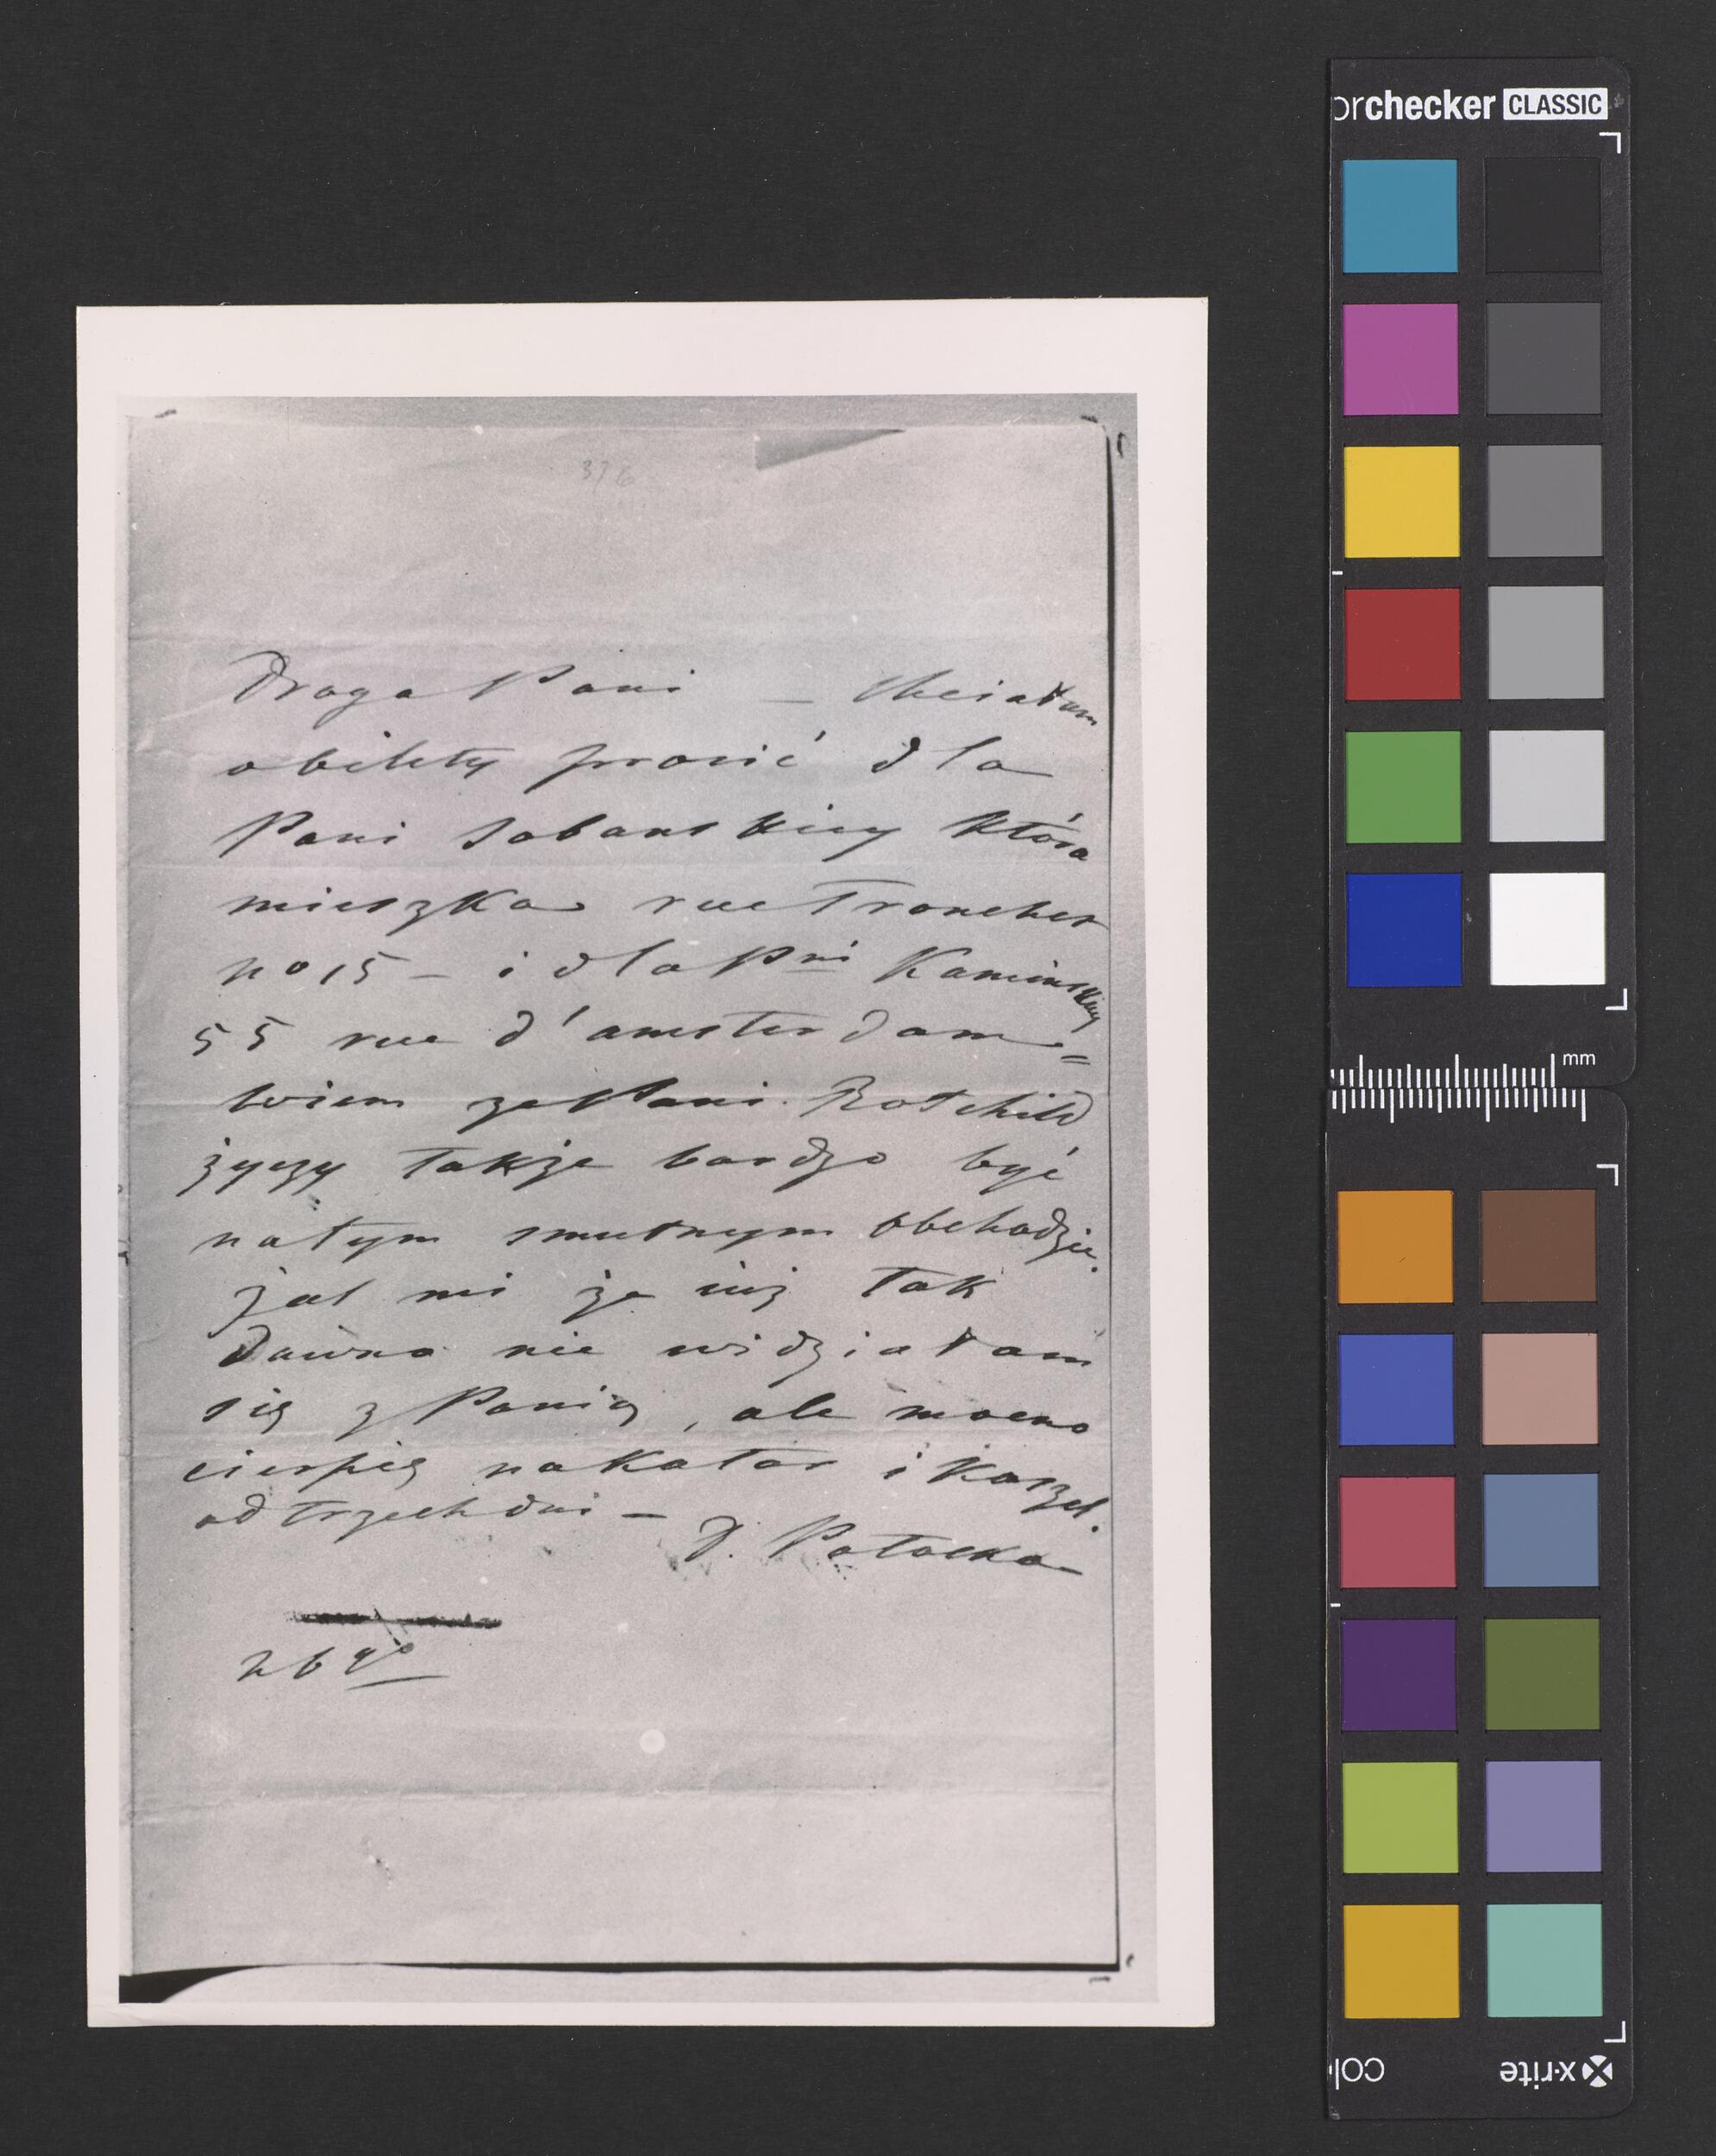 orchecker CLASSIC
376
Draga Pani — Chciałam
o bilety prosić dla
Pani Sobanskiey która
mieszka rue Tronchet
no 15 — i dla Pni Kaminskiey
55 rue d'amsterdam =
wiem ze Pani Rotchild
życzy także bardzo być
na tym smutnym obchodzie.
żal mi że iuż tak
dawno nie widziałam
się z Panią, ale mocno
cierpię na Katar i Kaszel.
od trzech dni —
D. Potocka
mm
col
x-rite